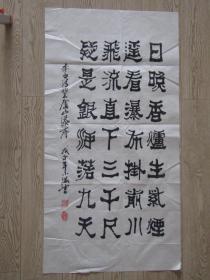 日照香爐生紫煙
遙看瀑布掛前川
飛流直下三千尺
疑是銀河落九天
李白詩望廬山瀑布 戊子年